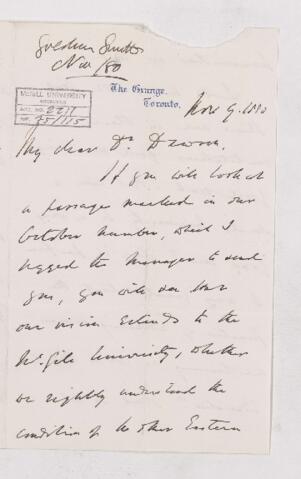 Goldwin Smith
Nov /80
McGILL UNIVERSITY
ARCHIVES
ACC. NO. 2211
REF. 75/1/15
The Grange.
Toronto.
Nov 9. 1880
My dear Dr Dawson.
If you will look at
a passage marked in our
October number, which I
begged the Manager to send
you, you will see that
our vision extends to the
McGill University, whether
we rightly understand the
condition of the other Eastern